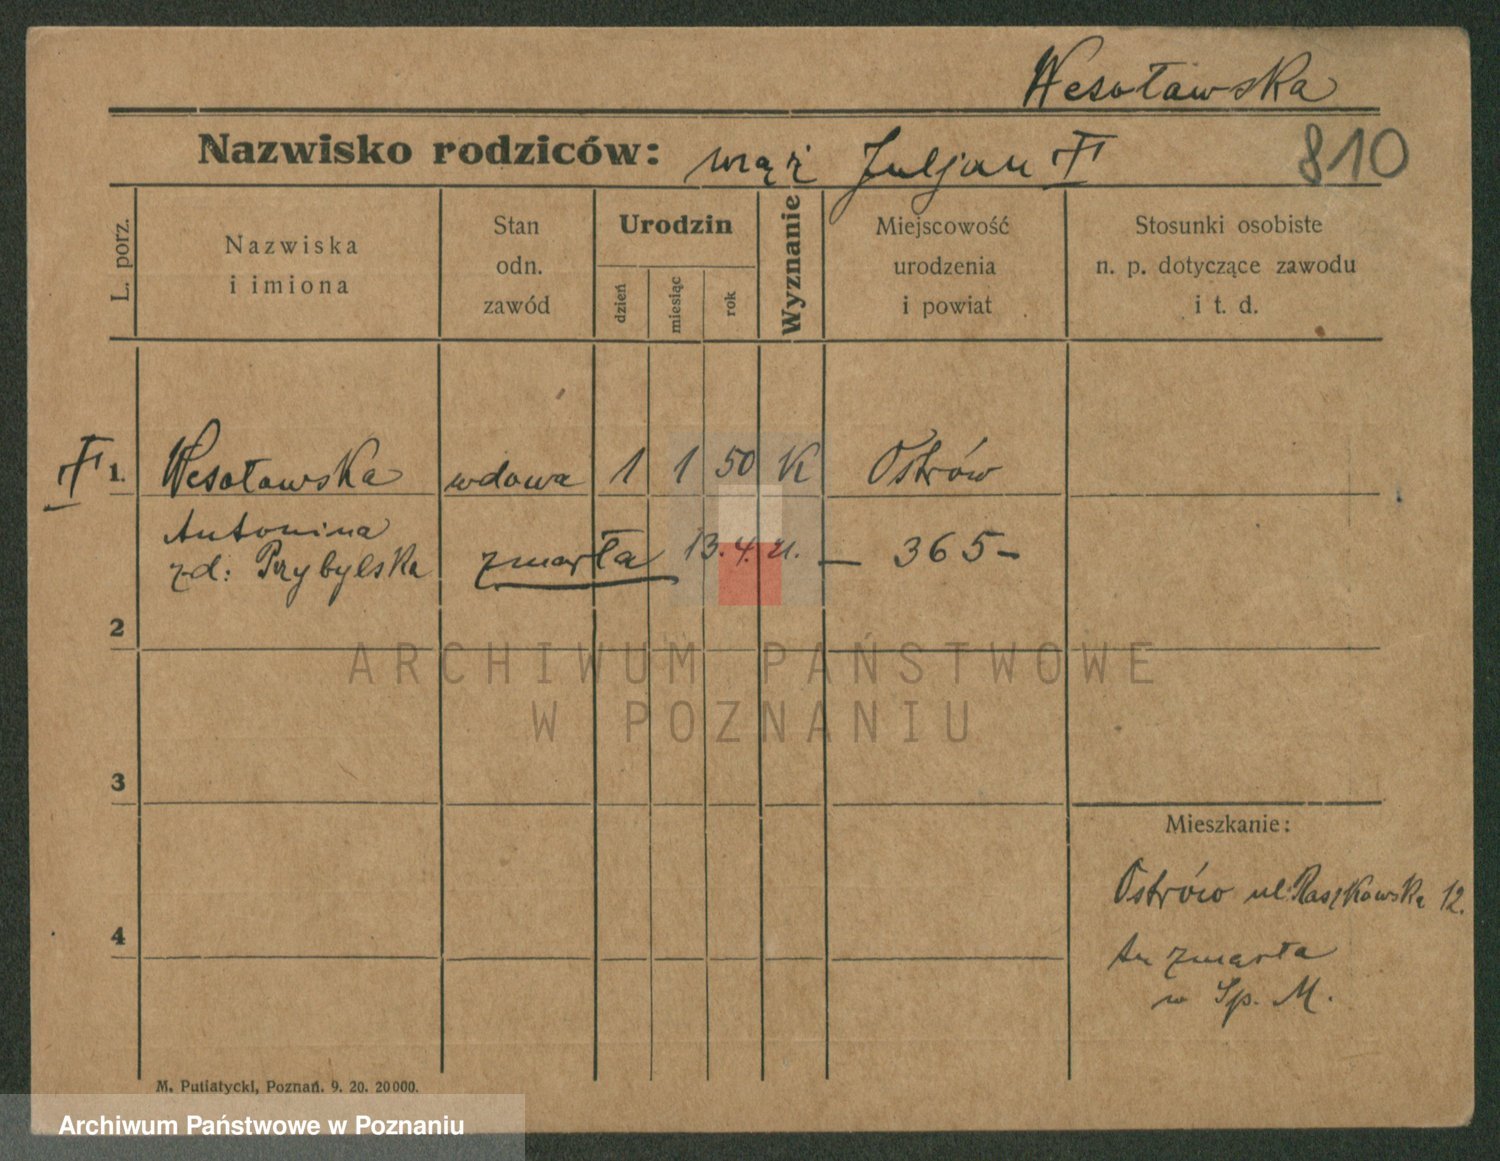 Wesoławska
Nazwisko rodziców: mąż Juljan
810
L. porz.
Nazwiska
i imiona
Stan
odn.
zawód
Urodzin
dzień
miesiąc
rok
Wyznanie
Miejscowość
urodzenia
i powiat
Stosunki osobiste
n. p. dotyczące zawodu
i t. d.
1. Wesoławska wdowa 1 1 50 K Ostrów
Antonina
zd: Przybylska zmarła 13.4.21. — 365 —
2
3
4
Mieszkanie:
Ostrów ul. Raszkowska 12.
tu zmarła
w Sp. M.
M. Putiatycki, Poznań. 9. 20. 20000.
ARCHIWUM PAŃSTWOWE
W POZNANIU
Archiwum Państwowe w Poznaniu